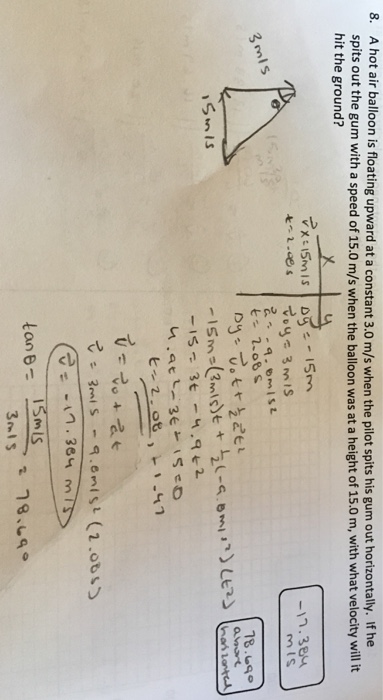 8. A hot air balloon is floating upward at a constant 3.0 m/s when the pilot spits his gum out horizontally. If he
spits out the gum with a speed of 15.0 m/s when the balloon was at a height of 15.0 m, with what velocity will it
hit the ground?
3m/s
θ
15m/s
x
y
v⃗x = 15m/s
t = 2.08s
Δy = -15m
v⃗oy = 3m/s
a⃗ = -9.8m/s²
t = 2.08s
Δy = v⃗ot + ½a⃗t²
-15m = (3m/s)t + ½(-9.8m/s²)(t²)
-15 = 3t - 4.9t²
4.9t² - 3t - 15 = 0
t = 2.08, t -1.47
v⃗ = v⃗o + a⃗t
v⃗ = 3m/s - 9.8m/s² (2.08s)
v⃗ = -17.384 m/s
tanθ = 15m/s / 3m/s = 78.69°
-17.384
m/s
78.69°
above
horizontal